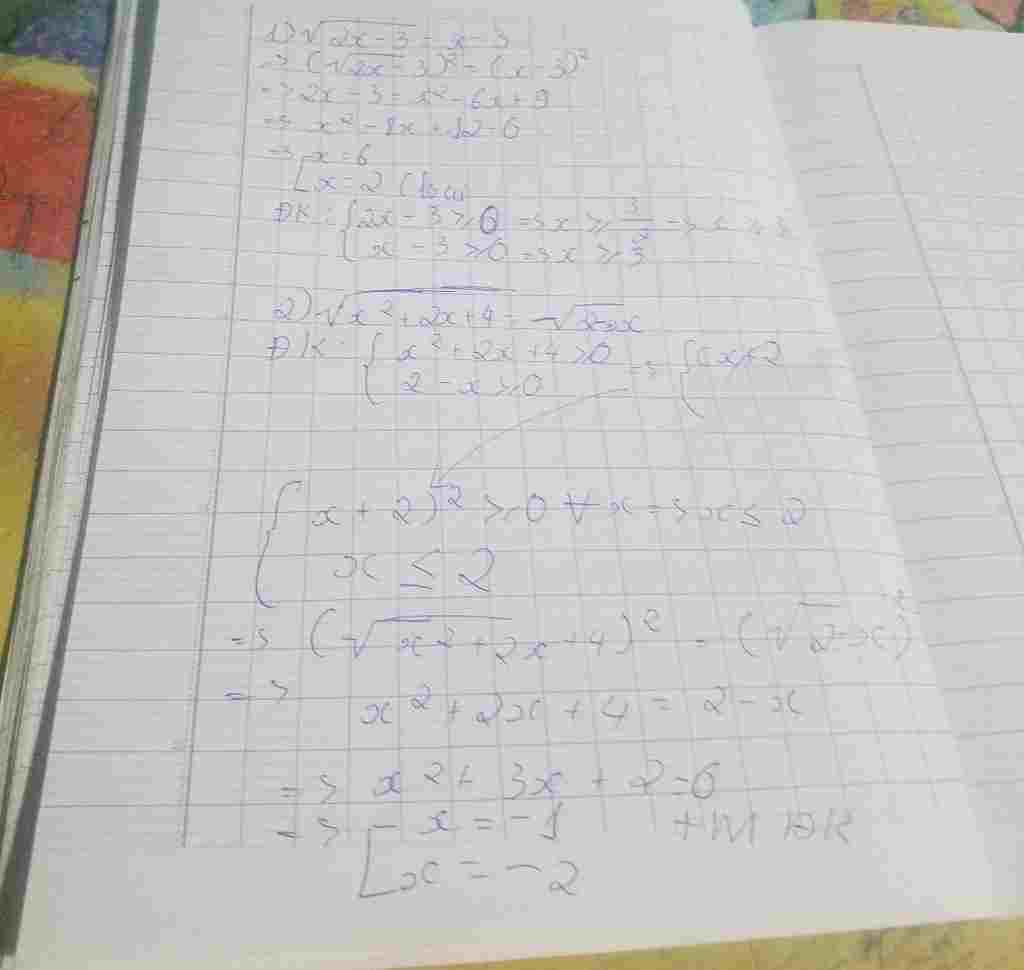 1) √(2x-3) = x-3
=> (√(2x-3))² = (x-3)²
=> 2x-3 = x² - 6x + 9
=> x² - 8x + 12 = 0
=> [ x = 6
[ x = 2 (loại)
ĐK: { 2x - 3 ≥ 0 => x ≥ 3/2 => x ≥ 3
{ x - 3 ≥ 0 => x ≥ 3
2) √(x² + 2x + 4) = √(2-x)
ĐK: { x² + 2x + 4 ≥ 0 => { x ≤ 2
{ 2 - x ≥ 0
{ x + 2)² ≥ 0 ∀x => x ≤ 2
{ x ≤ 2
=> (√(x² + 2x + 4))² = (√(2-x))²
=> x² + 2x + 4 = 2 - x
=> x² + 3x + 2 = 0
=> [ x = -1 t/m ĐK
[ x = -2